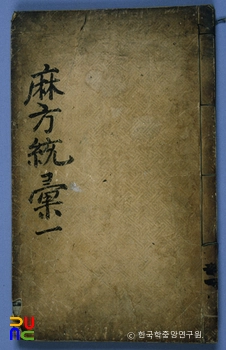 麻方統彙一
ⓒ 한국학중앙연구원